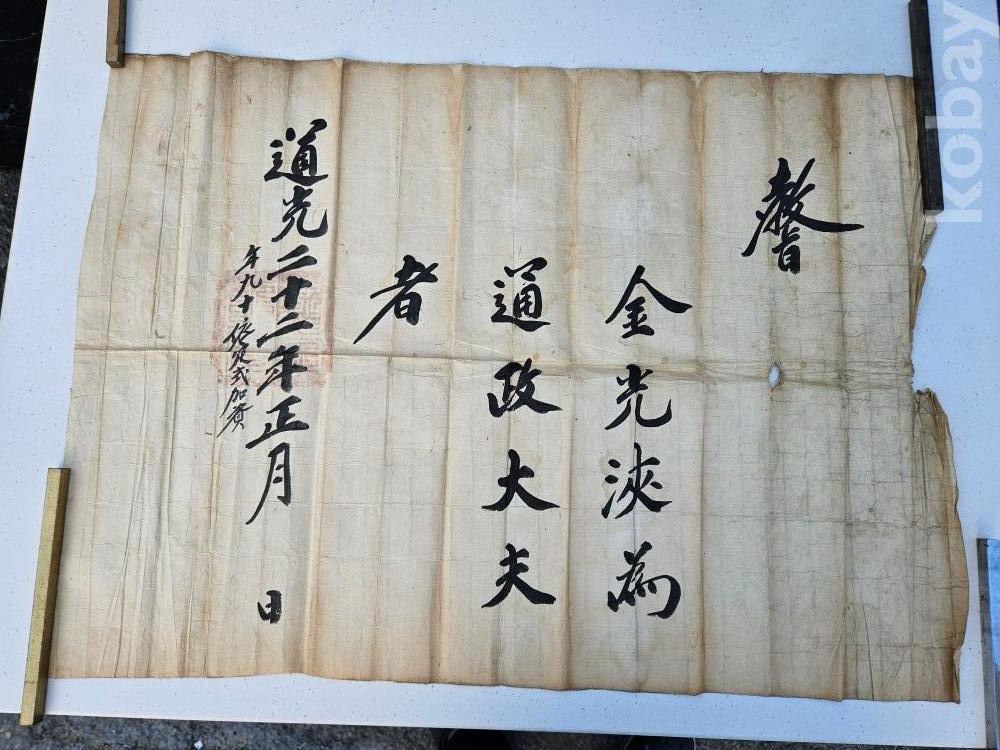 敎旨
金光浹為
通政大夫
者
道光二十二年正月 日
年九十依定式加資
kobay